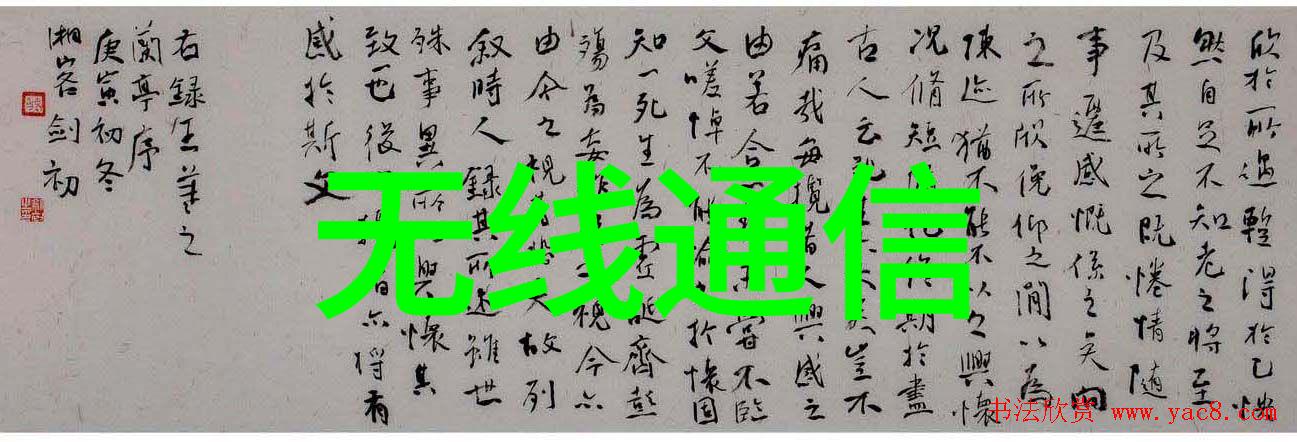 欣於所遇暫得於己快
然自足不知老之將至
及其所之既惓情隨
事遷感慨係之矣向
之所欣俛仰之間以為
陳迹猶不能不以之興懷
況脩短化終期於盡
古人云死大矣豈不
痛哉每攬昔人興感之
由若合未嘗不臨
文嗟悼不能喻於懷固
知一死生為虛誕齊彭
殤為妄視今亦
由今之視昔悲夫故列
敘時人錄其所述雖世
殊事異所興懷其
致一也後攬者亦將有
感於斯文
右錄王羲之
蘭亭序
庚寅初冬
湘客劍初
无线通信
书法欣赏 www.yac8.com